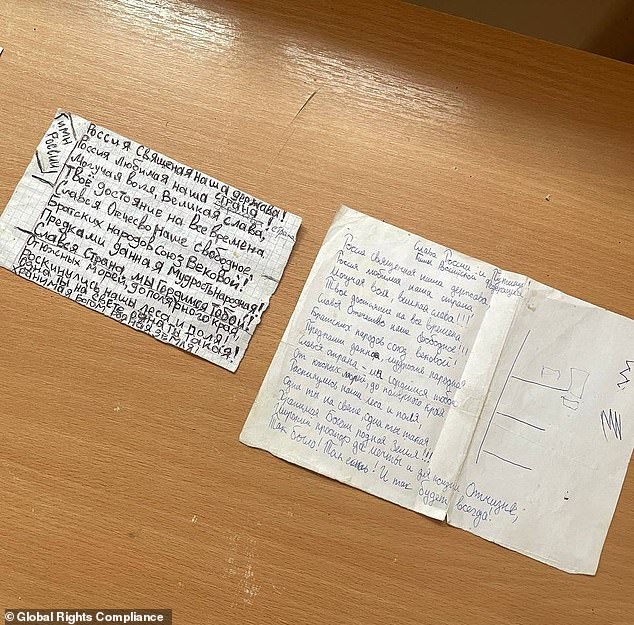 ГИМН
РОССИИ
Россия священая наша держава!
Россия любимая наша страна!
страна
Могучая воля, Великая слава,
Твоё достояние на все времена
Славься Отечество наше свободное,
Братских народов Союз Вековой!
Предками данная Мудрость народная!
Славься Страна мы Гордимся Тобой!
От южных морей, до полярного края,
Раскинулись наши леса и поля!
Одна ты на свете, одна ты такая!
Хранимая Богом родная земля
Слава России и
Россия священная наша держава
Россия любимая наша страна
Могучая воля великая слава!!!
Твое достояние на все времена
Славься Отечество наше свободное!!!
Братских народов союз вековой!
Предками данная, мудрость народная
Славься страна - мы гордимся тобой
От южных морей, до полярного края
Раскинулись наши леса и поля,
Одна ты на свете, одна ты такая
Хранимая Богом родная Земля!!!
Широкий простор для мечты и для жизни Отчизне,
Так было! Так есть! И так будет всегда!
© Global Rights Compliance